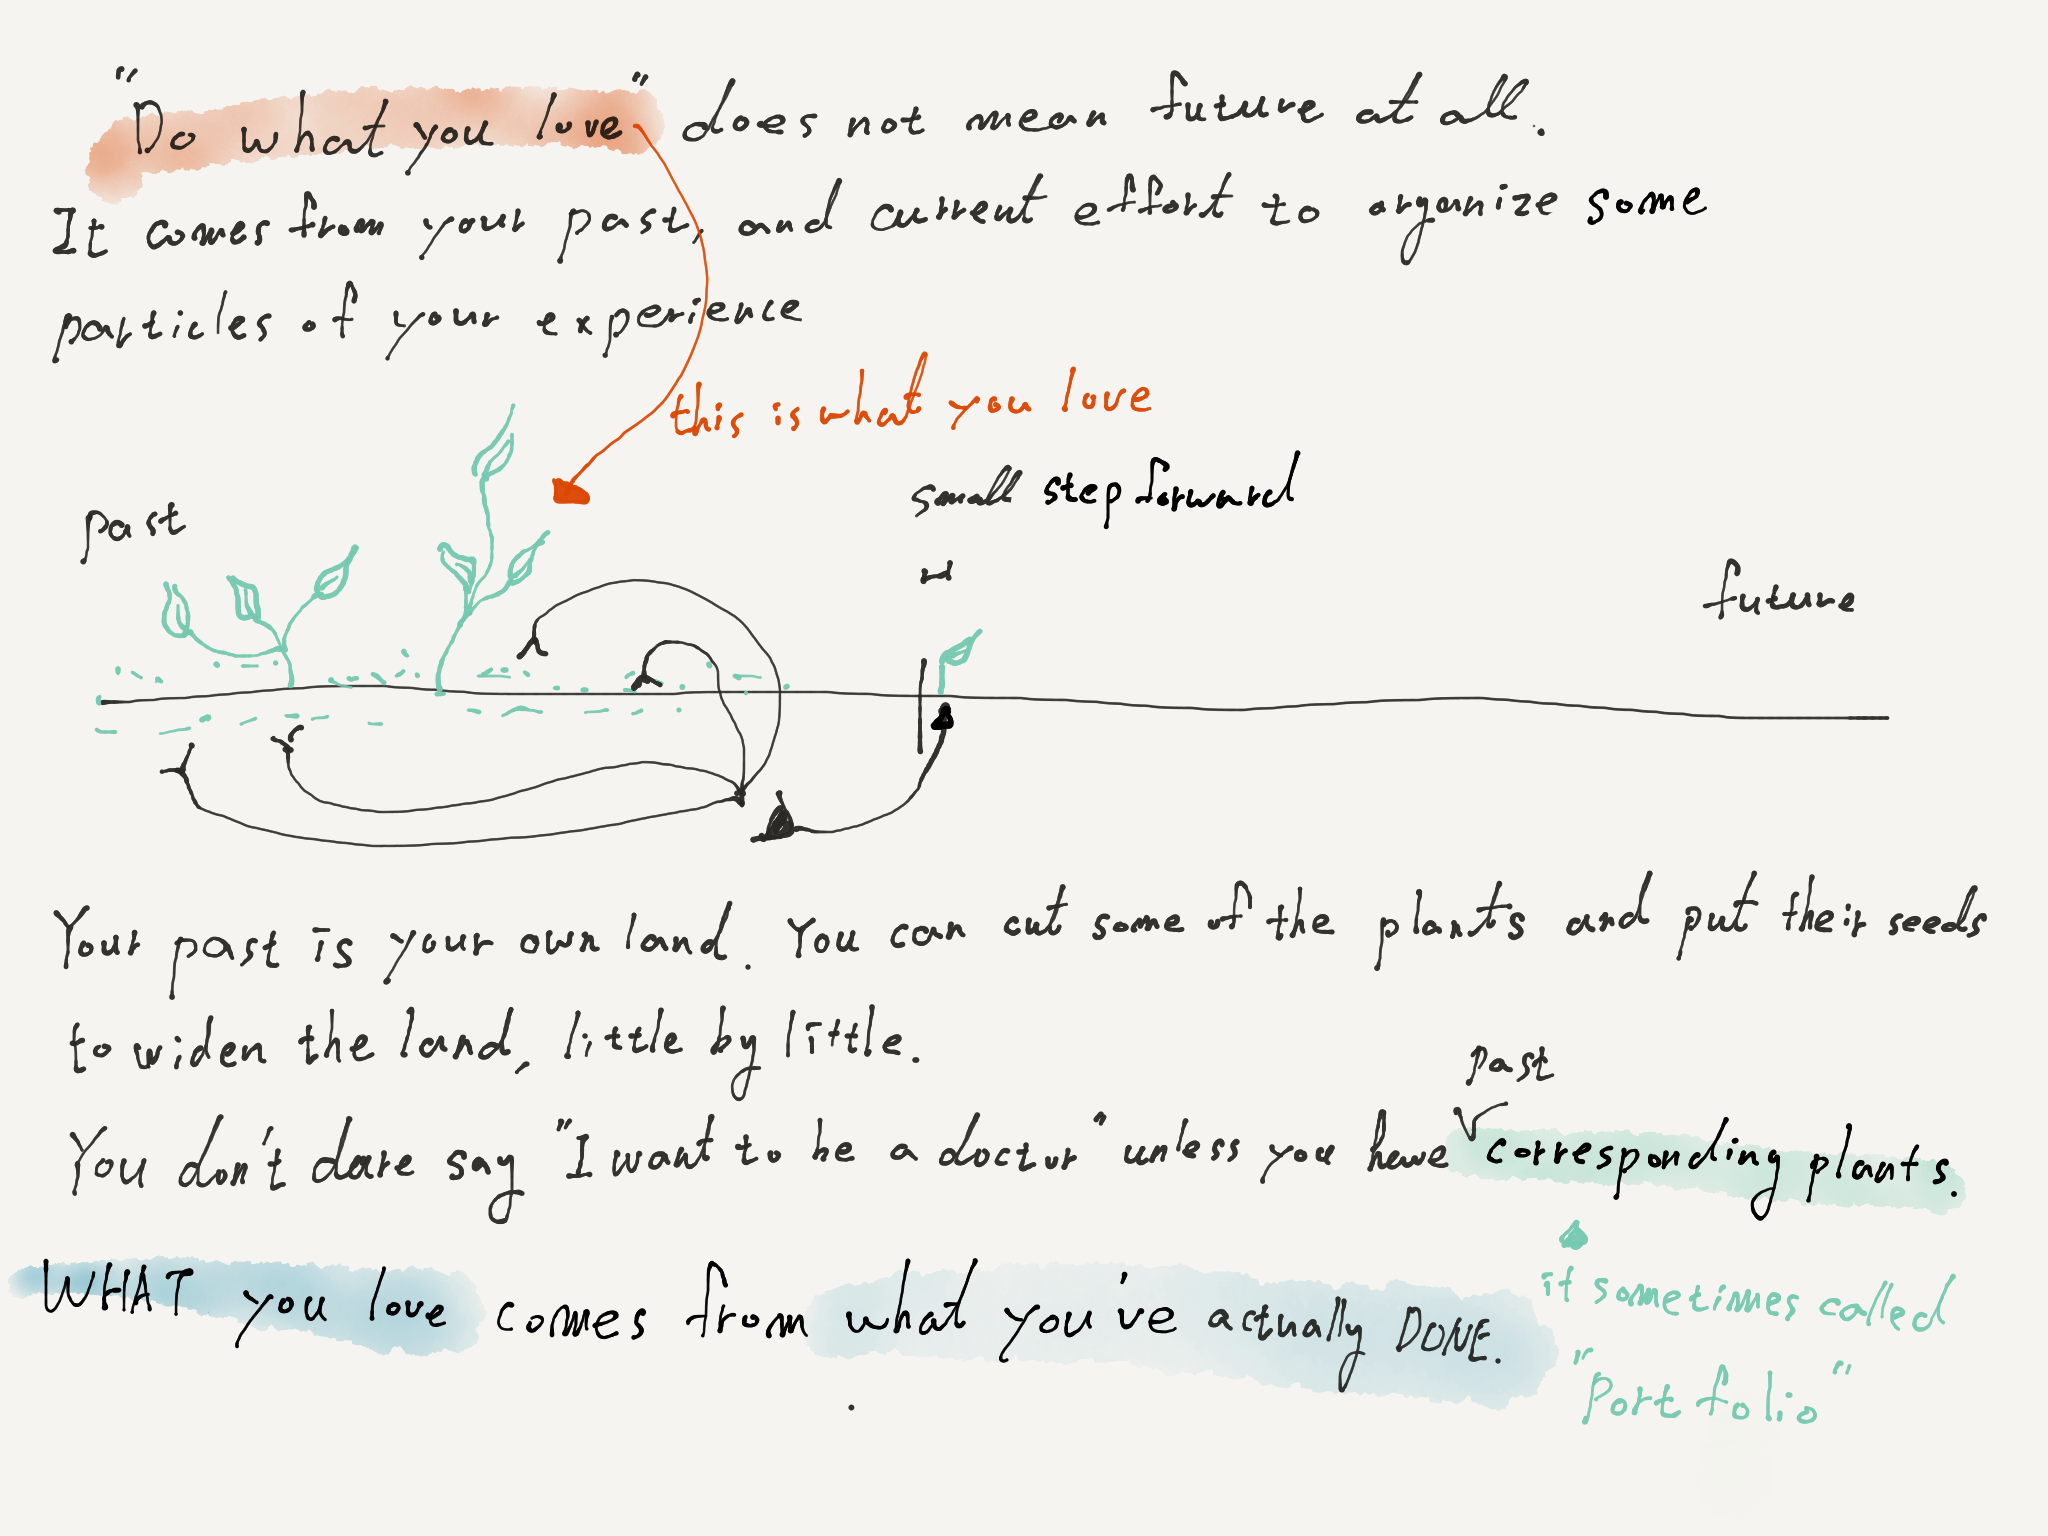 "Do what you love" does not mean future at all.
It comes from your past, and current effort to organize some
particles of your experience
this is what you love
small step forward
past
future
Your past is your own land. You can cut some of the plants and put their seeds
to widen the land, little by little.
past
You don't dare say "I want to be a doctor" unless you have corresponding plants.
WHAT you love comes from what you've actually DONE.
it sometimes called
"Portfolio"